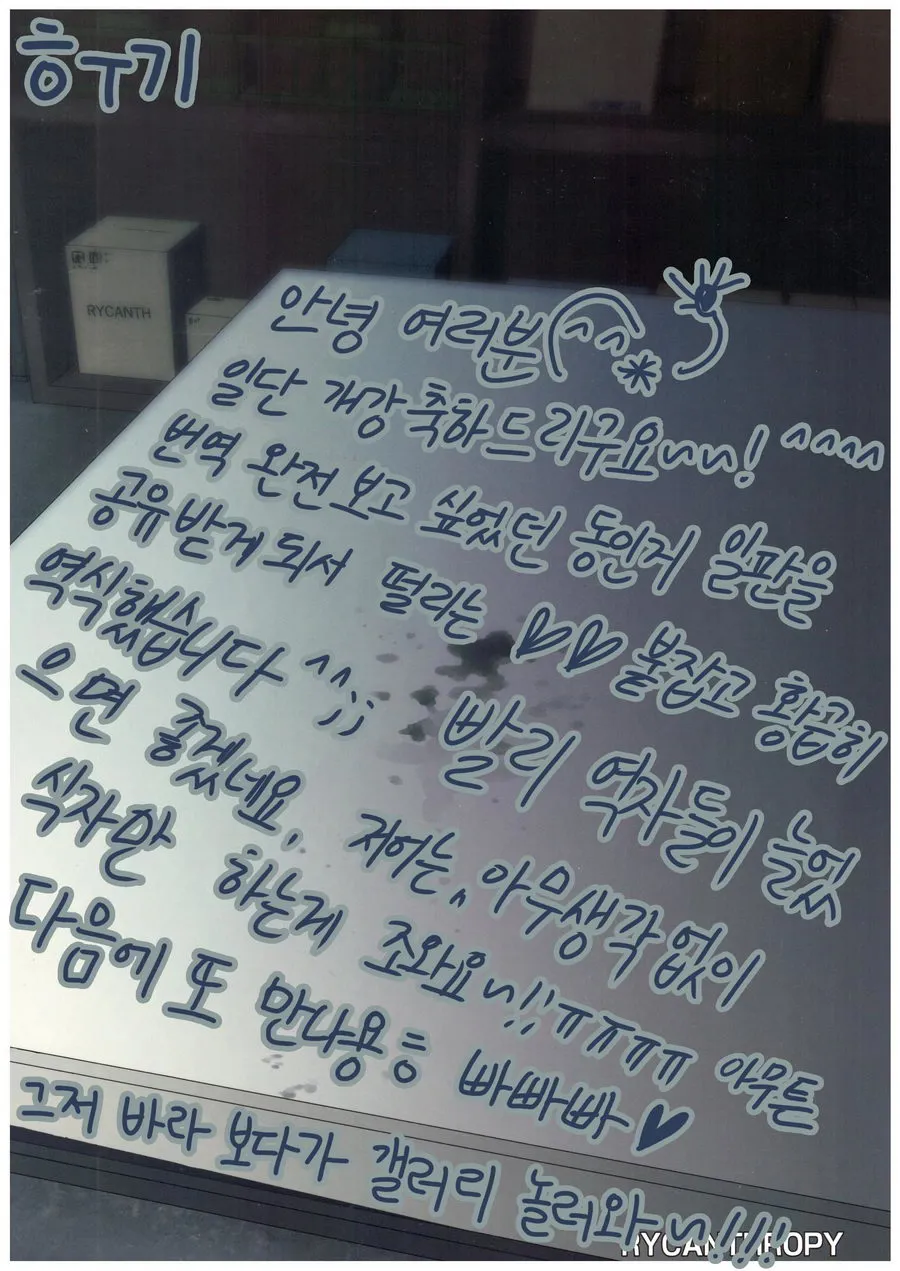 후기
RYCANTH
안녕 여러분(^^*)
일단 개강 축하드리구요~~! ^^^^
번역 완전 보고 싶었던 동인지 일판을
공유받게 되서 떨리는 ♡♡ 붙잡고 황급히
역식했습니다 ^^;;
빨리 역자들이 늘었
으면 좋겠네요, 저어는, 아무생각 없이
식자만 하는게 조와요~!! ㅠㅠㅠㅠ 아무튼
다음에 또 만나용ㅎ 빠빠빠♥
그저 바라 보다가 갤러리 놀러와~!!!
RYCANTHROPY